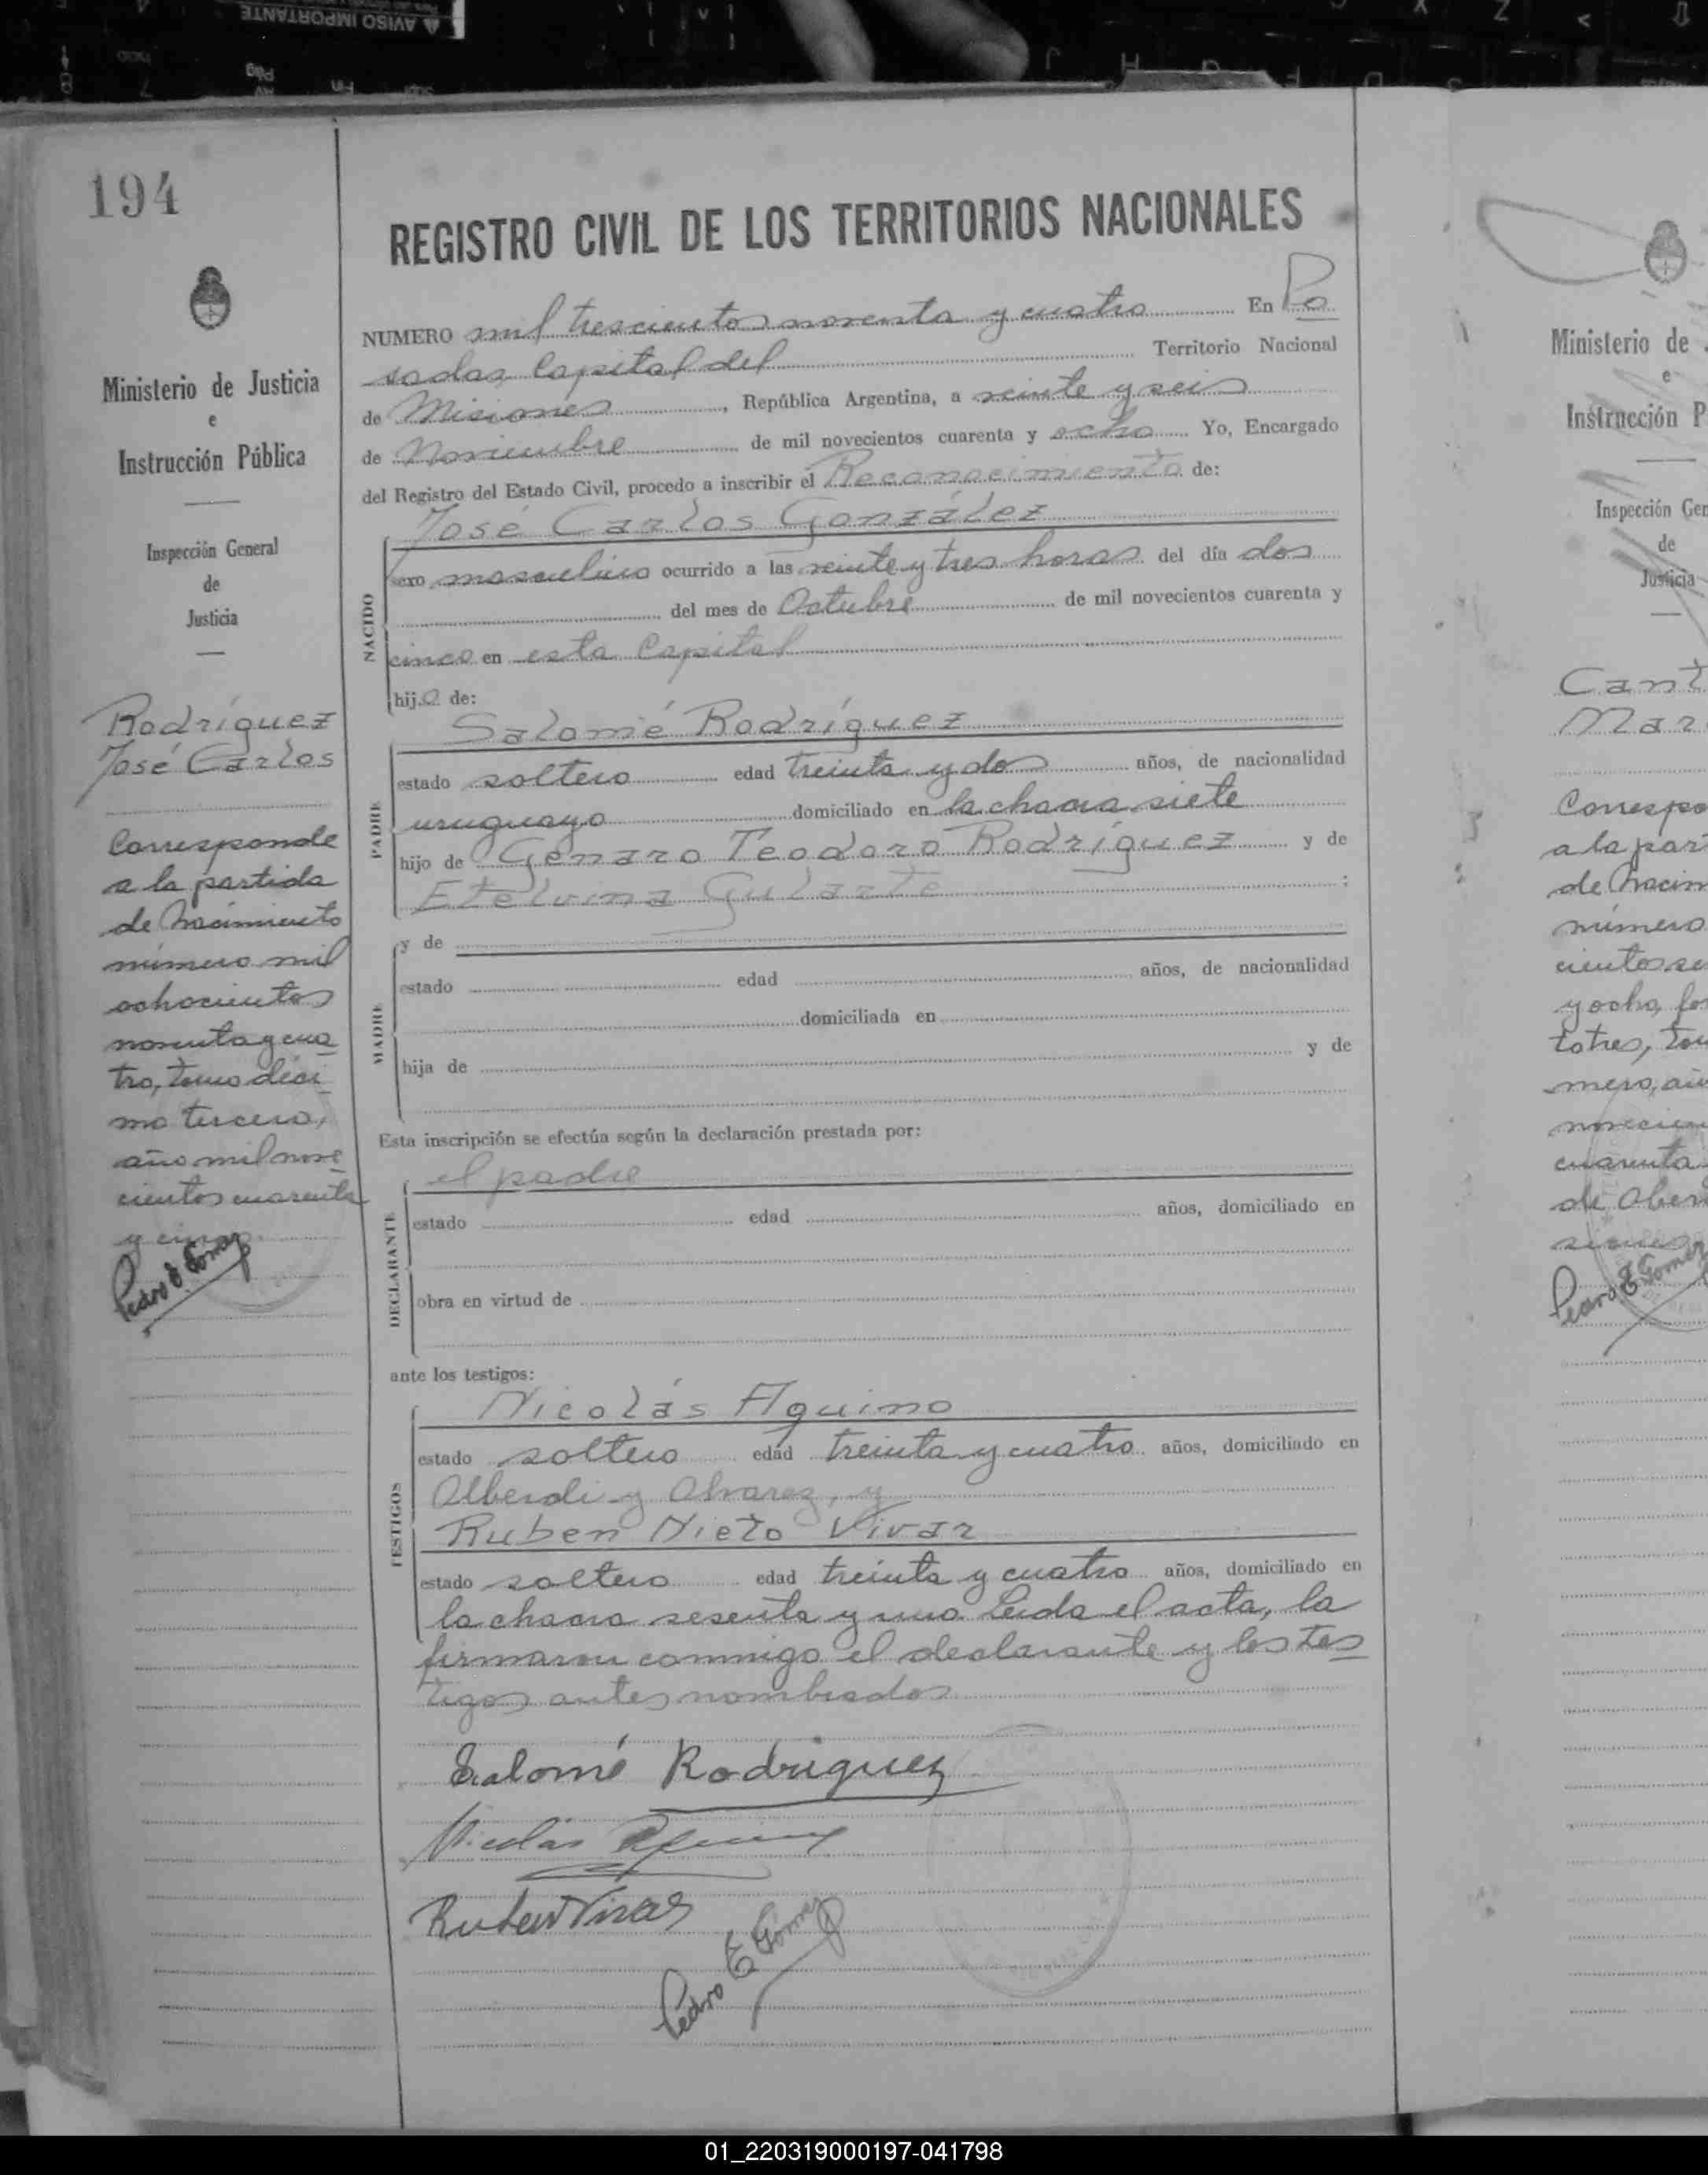 AVISO IMPORTANTE
194
REGISTRO CIVIL DE LOS TERRITORIOS NACIONALES
Ministerio de Justicia
e
Instrucción Pública
Inspección General
de
Justicia
Rodríguez
José Carlos
Corresponde
a la partida
de Nacimiento
número mil
ochocientos
noventa y cua
tro, tomo déci
mo tercero,
año mil nove
cientos cuarenta
y cinco.
Pedro E Gomez
NUMERO mil trescientos noventa y cuatro En Po
sadas Capital del Territorio Nacional
de Misiones, República Argentina, a veinte y seis
de Noviembre de mil novecientos cuarenta y ocho Yo, Encargado
del Registro del Estado Civil, procedo a inscribir el Reconocimiento de:
José Carlos González
NACIDO
sexo masculino ocurrido a las veinte y tres horas del día dos
del mes de Octubre de mil novecientos cuarenta y
cinco en esta Capital
hijo de:
Salomé Rodríguez
PADRE
estado soltero edad treinta y dos años, de nacionalidad
uruguayo domiciliado en la chacra siete
hijo de Genaro Teodoro Rodríguez y de
Etelvina Gularte ;
y de
MADRE
estado edad años, de nacionalidad
domiciliada en
hija de y de
Esta inscripción se efectúa según la declaración prestada por:
el padre
DECLARANTE
estado edad años, domiciliado en
obra en virtud de
ante los testigos:
Nicolás Aquino
TESTIGOS
estado soltero edad treinta y cuatro años, domiciliado en
Alberdi y Alvarez, y
Ruben Nieto Vivar
estado soltero edad treinta y cuatro años, domiciliado en
la chacra sesenta y uno. Leida el acta, la
firmaron conmigo el declarante y los tes
tigos antes nombrados
Salomé Rodriguez
Nicolás Aquino
Ruben Vivar
Pedro E Gómez
Ministerio de J
e
Instrucción P
Inspección Gen
de
Justicia
Cant
Mar
Correspo
a la par
de Nacim
número
cientos se
y ocho, fo
to tres, to
mero, añ
novecien
cuarenta
de Oben
Pedro E Gomez
01_220319000197-041798